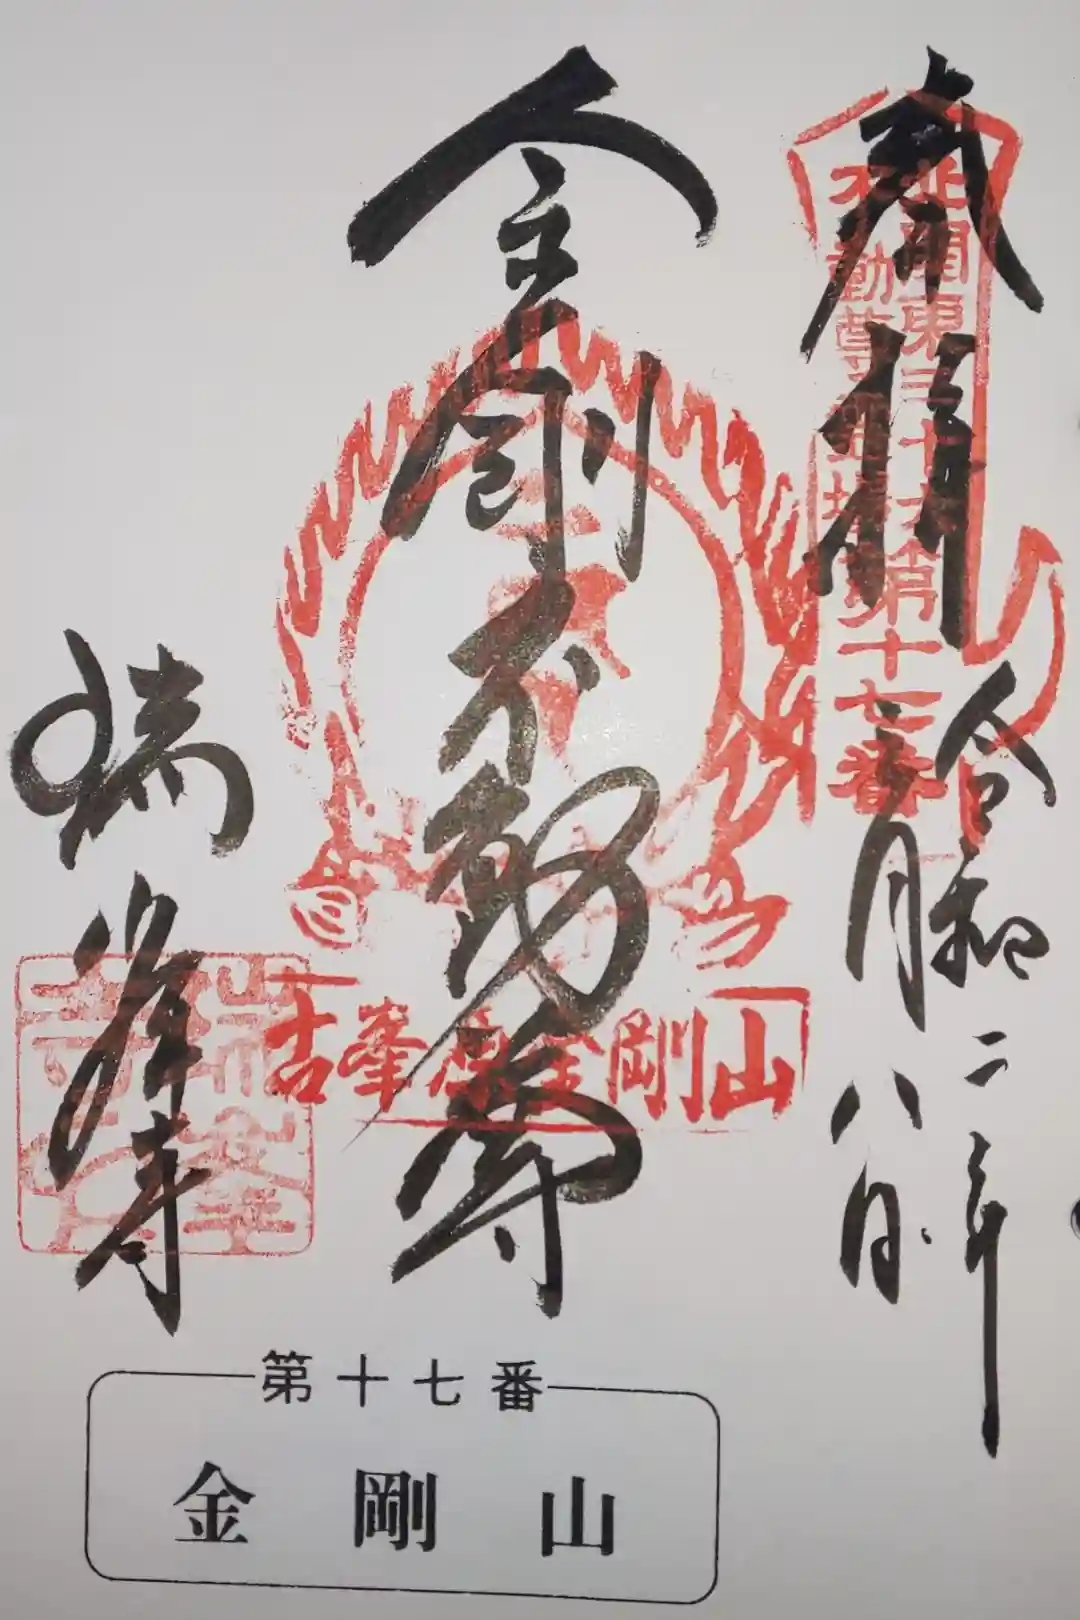 奉拝
北関東三十六
不動尊霊場
第十七番
令和二年
月八日
金剛不動尊
古峯原金剛山
瑞峰寺
第十七番
金剛山